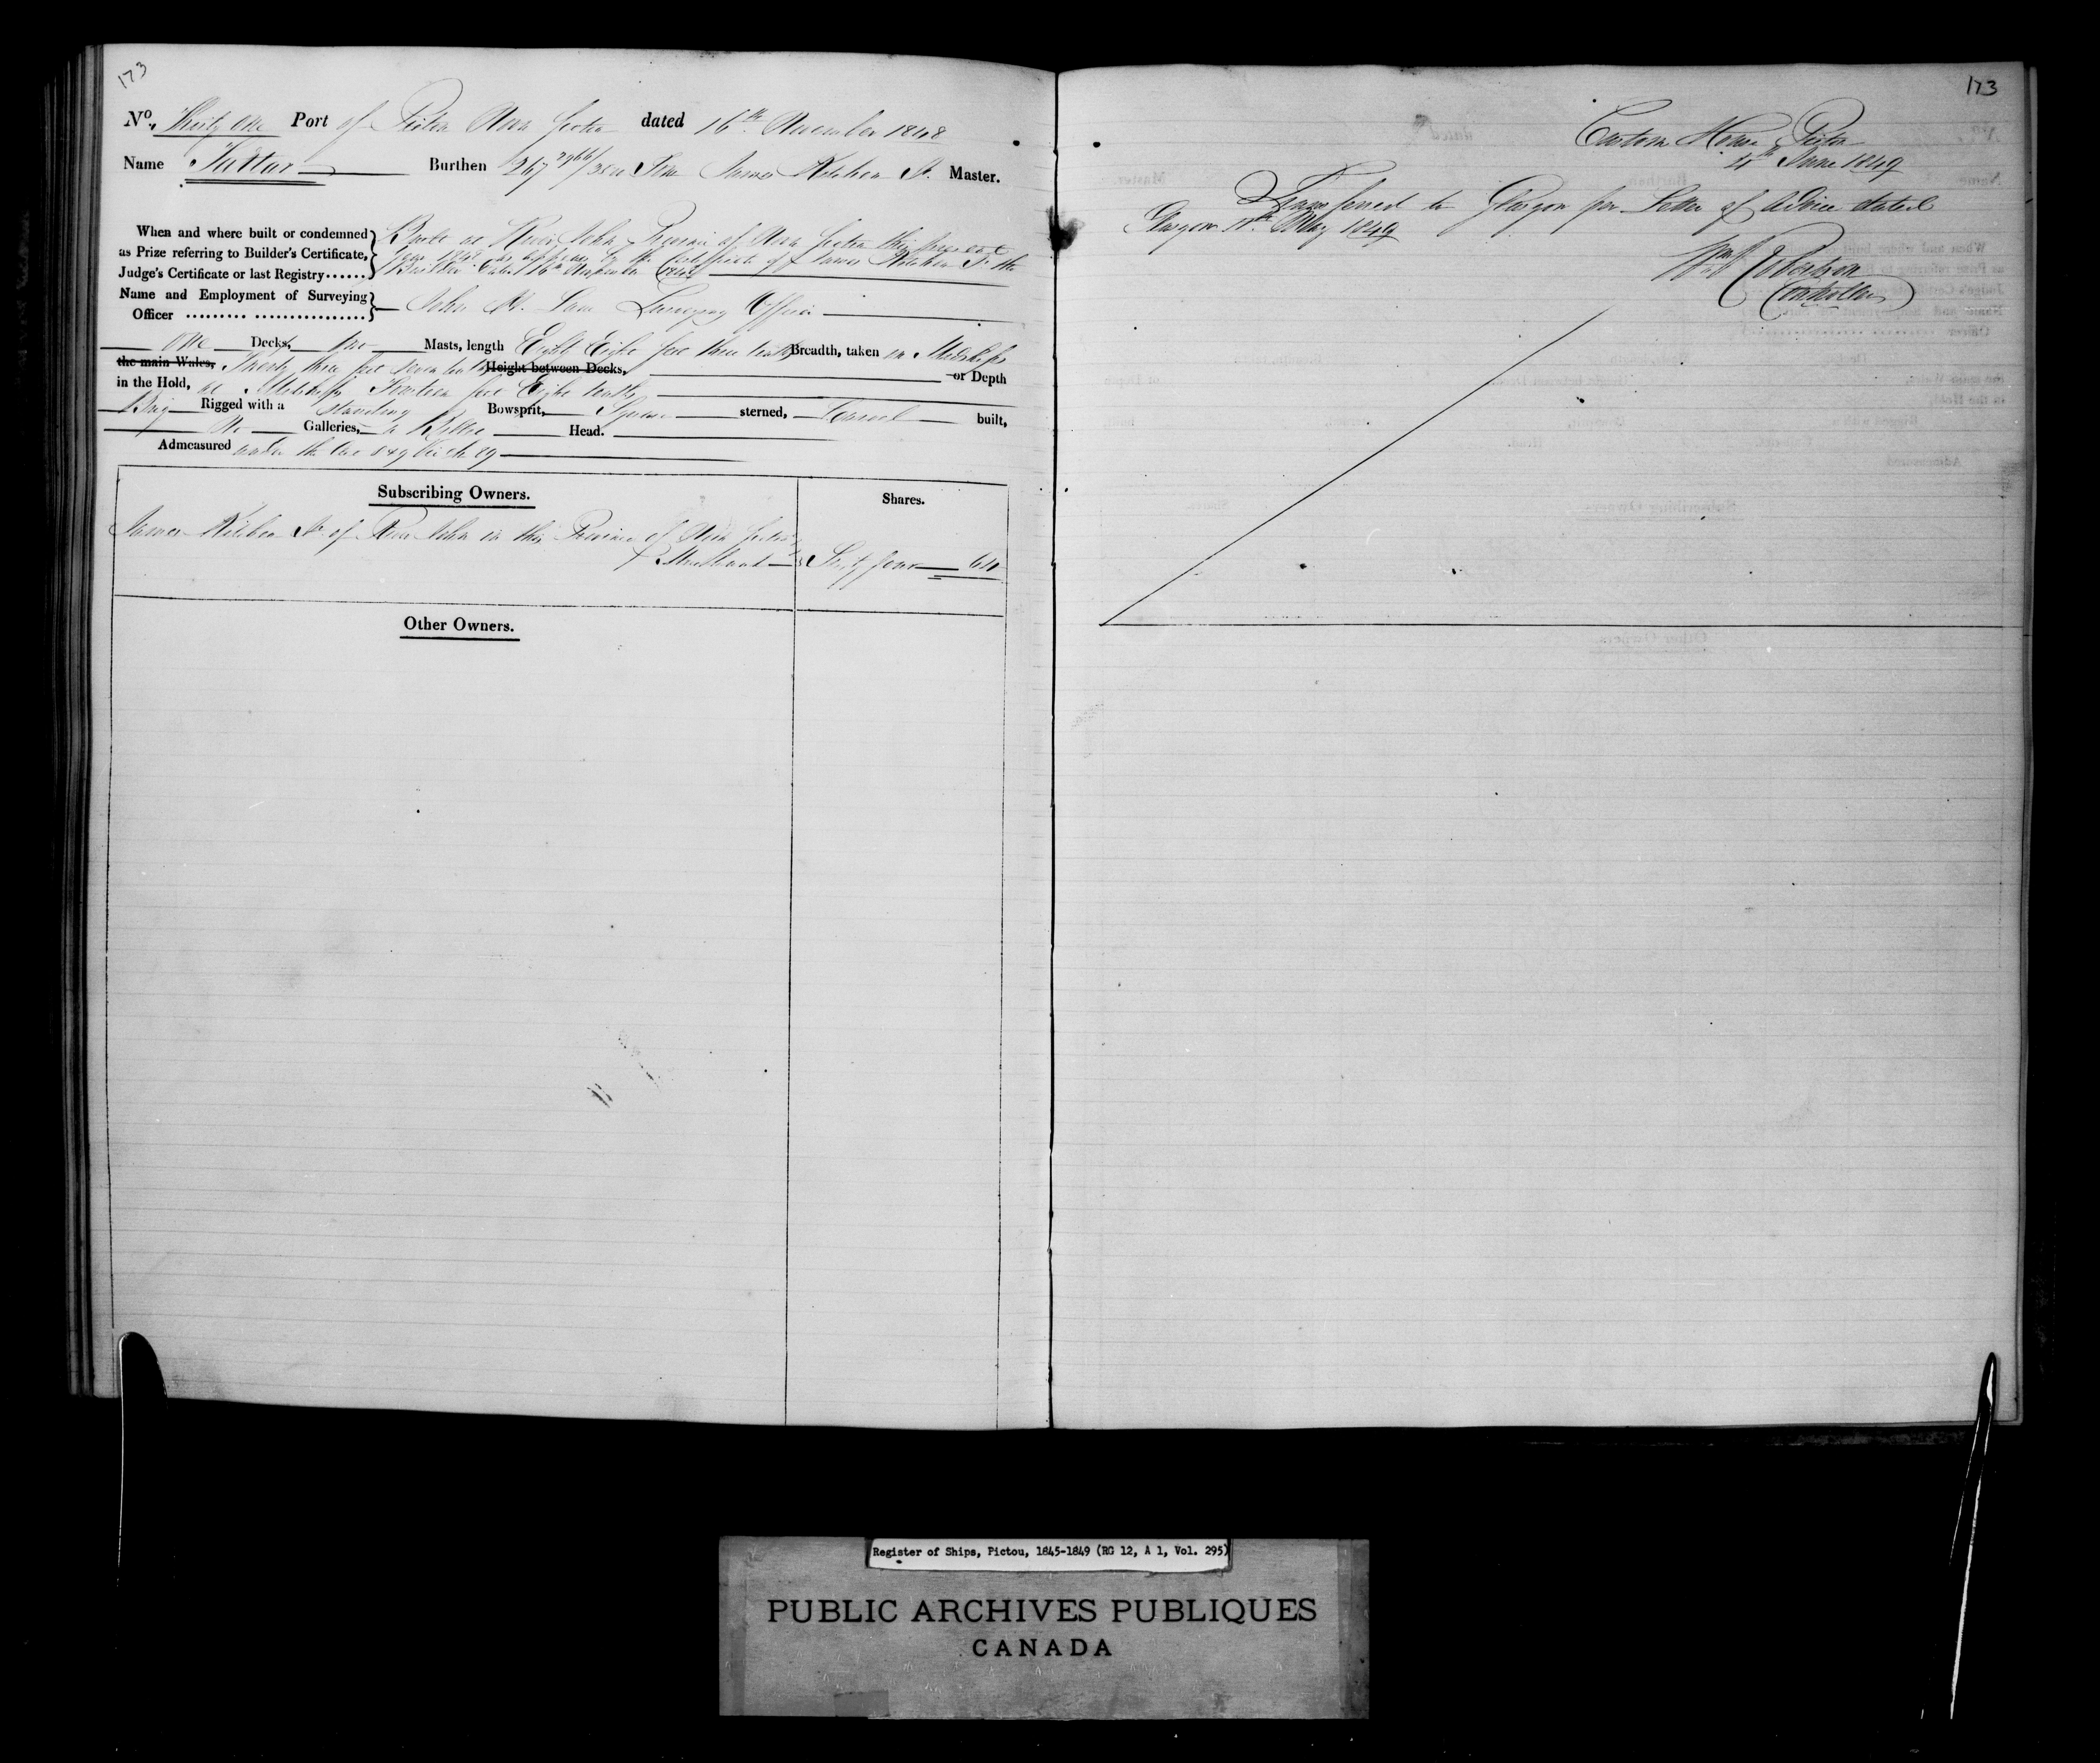 173
No. Thirty One Port of Pictou Nova Scotia dated 16th November 1848
Name Tartar Burthen 267 2966/3500 Tons James Kitchen Jr. Master.
When and where built or condemned as Prize referring to Builder's Certificate, Judge's Certificate or last Registry......
Built at River John Province of Nova Scotia this present
Year 1848 as appears by the Certificate of James Kitchen Jr the
Builder dated 16th November 1848
Name and Employment of Surveying Officer ......... ................
John Surveying Officer
One Decks, two Masts, length Eighty Eight feet three tenths Breadth, taken in Midships
the main Wales, Twenty three feet seven tenths Height between Decks, or Depth
in the Hold, at Midships feet Eight tenths
Brig Rigged with a standing Bowsprit, Square sterned, Carvel built,
No Galleries, a Billet Head.
Admeasured under the Act 8 & 9 Vic Ch 89
Subscribing Owners.
Shares.
James Kitchen Jr of River John in this Province of Nova Scotia
Merchant
Sixty four 64
Other Owners.
173
Custom House Pictou
4th June 1849
Transferred to Glasgow per Letter of Advice dated
Glasgow 11th May 1849
Wm Robertson
Controller
Register of Ships, Pictou, 1845-1849 (RG 12, A 1, Vol. 295)
PUBLIC ARCHIVES PUBLIQUES
CANADA